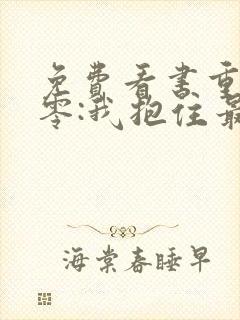 免费看书重
零:我抱住最
海棠春睡早